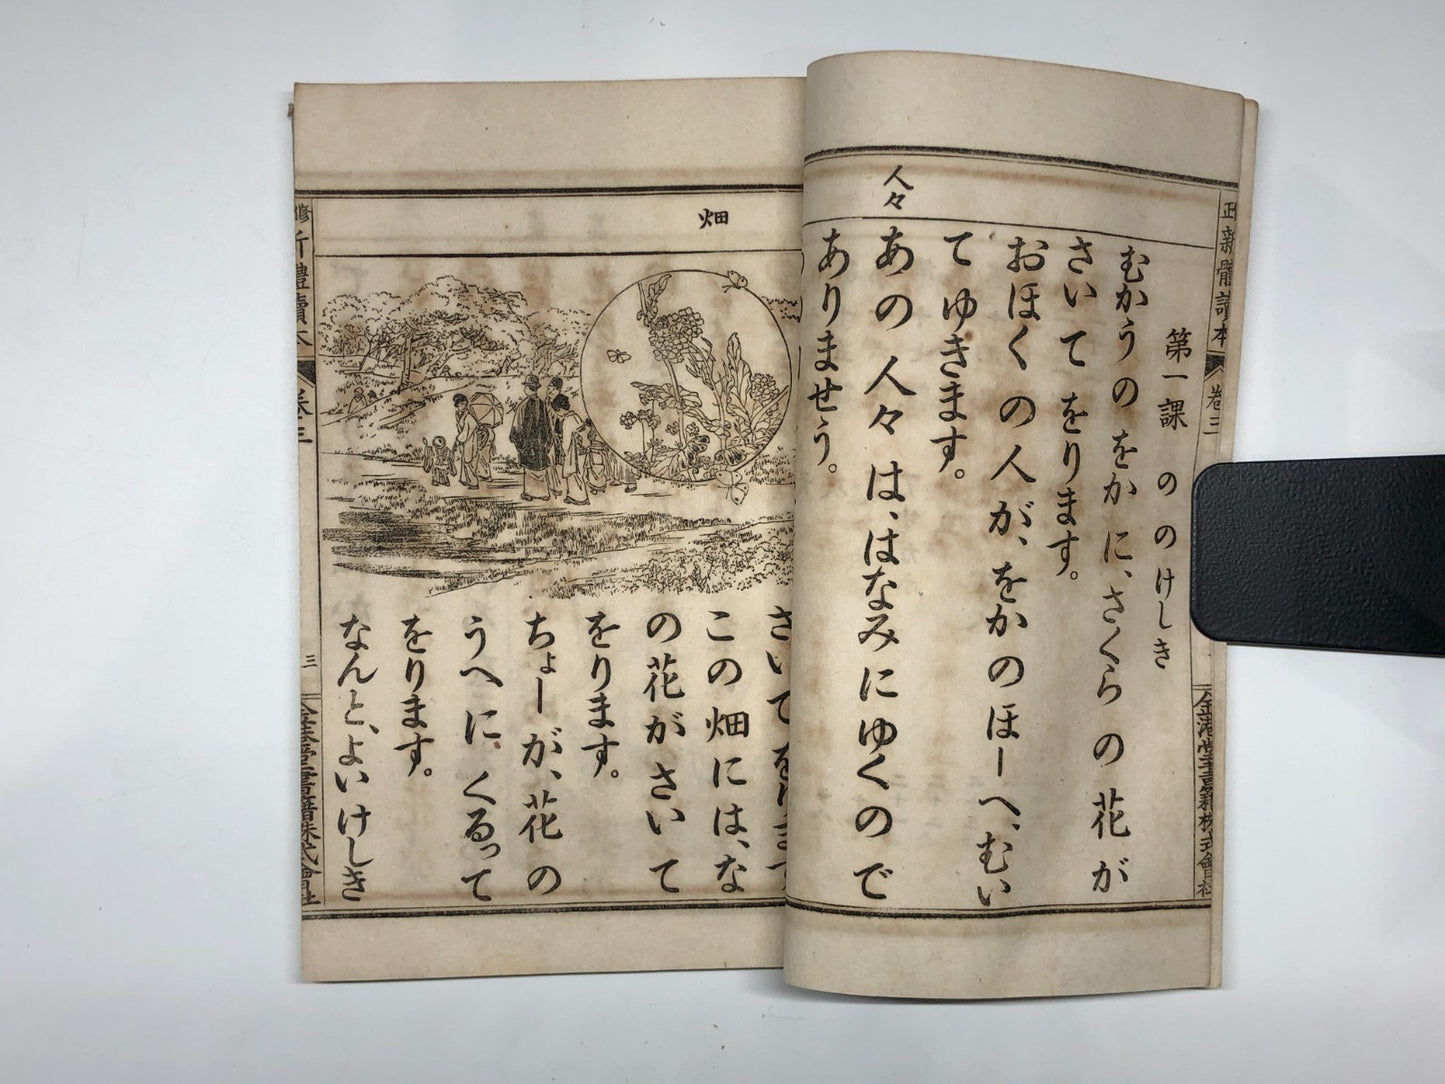 正新體讀本
卷三
人々
第一課 の のけしき
むかうの をかに、さくらの 花が
さいて をります。
おほくの人が、をかのほーへ、むい
て ゆきます。
あの 人々は、はなみにゆくので
ありませう。
金港堂書籍株式會社
畑
さいて
この 畑には、な
の 花が さいて
をります。
ちょーが、花の
うへに、くるって
をります。
なんと、よい けしき
新體讀本
卷三
三
金港堂書籍株式會社